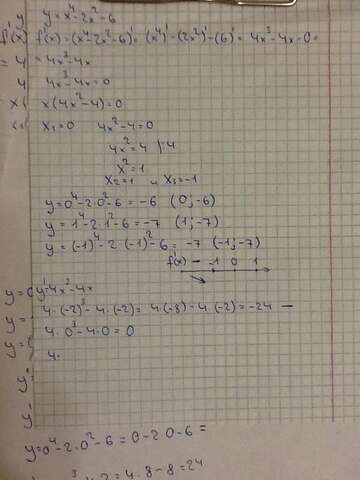 y y=x⁴-2x²-6
f'(x) f'(x)=(x⁴-2x²-6)'=(x⁴)'-(2x²)'-(6)'=4x³-4x-0=
= 4 =4x³-4x
4 4x³-4x=0
x( x(4x²-4)=0
x₁=0 4x²-4=0
4x²=4 |:4
x²=1
x₂=1 и x₃=-1
y=0⁴-2·0²-6=-6 (0;-6)
y=1⁴-2·1²-6=-7 (1;-7)
y=(-1)⁴-2·(-1)²-6=-7 (-1;-7)
f'(x) - -1 0 1
y= y'=4x³-4x
y= 4·(-2)³-4·(-2)=4·(-8)-4·(-2)=-24 —
y= 4·0³-4·0=0
4·
y=
y=
y=0⁴-2·0²-6=0-2·0-6=
=4·8-8=24